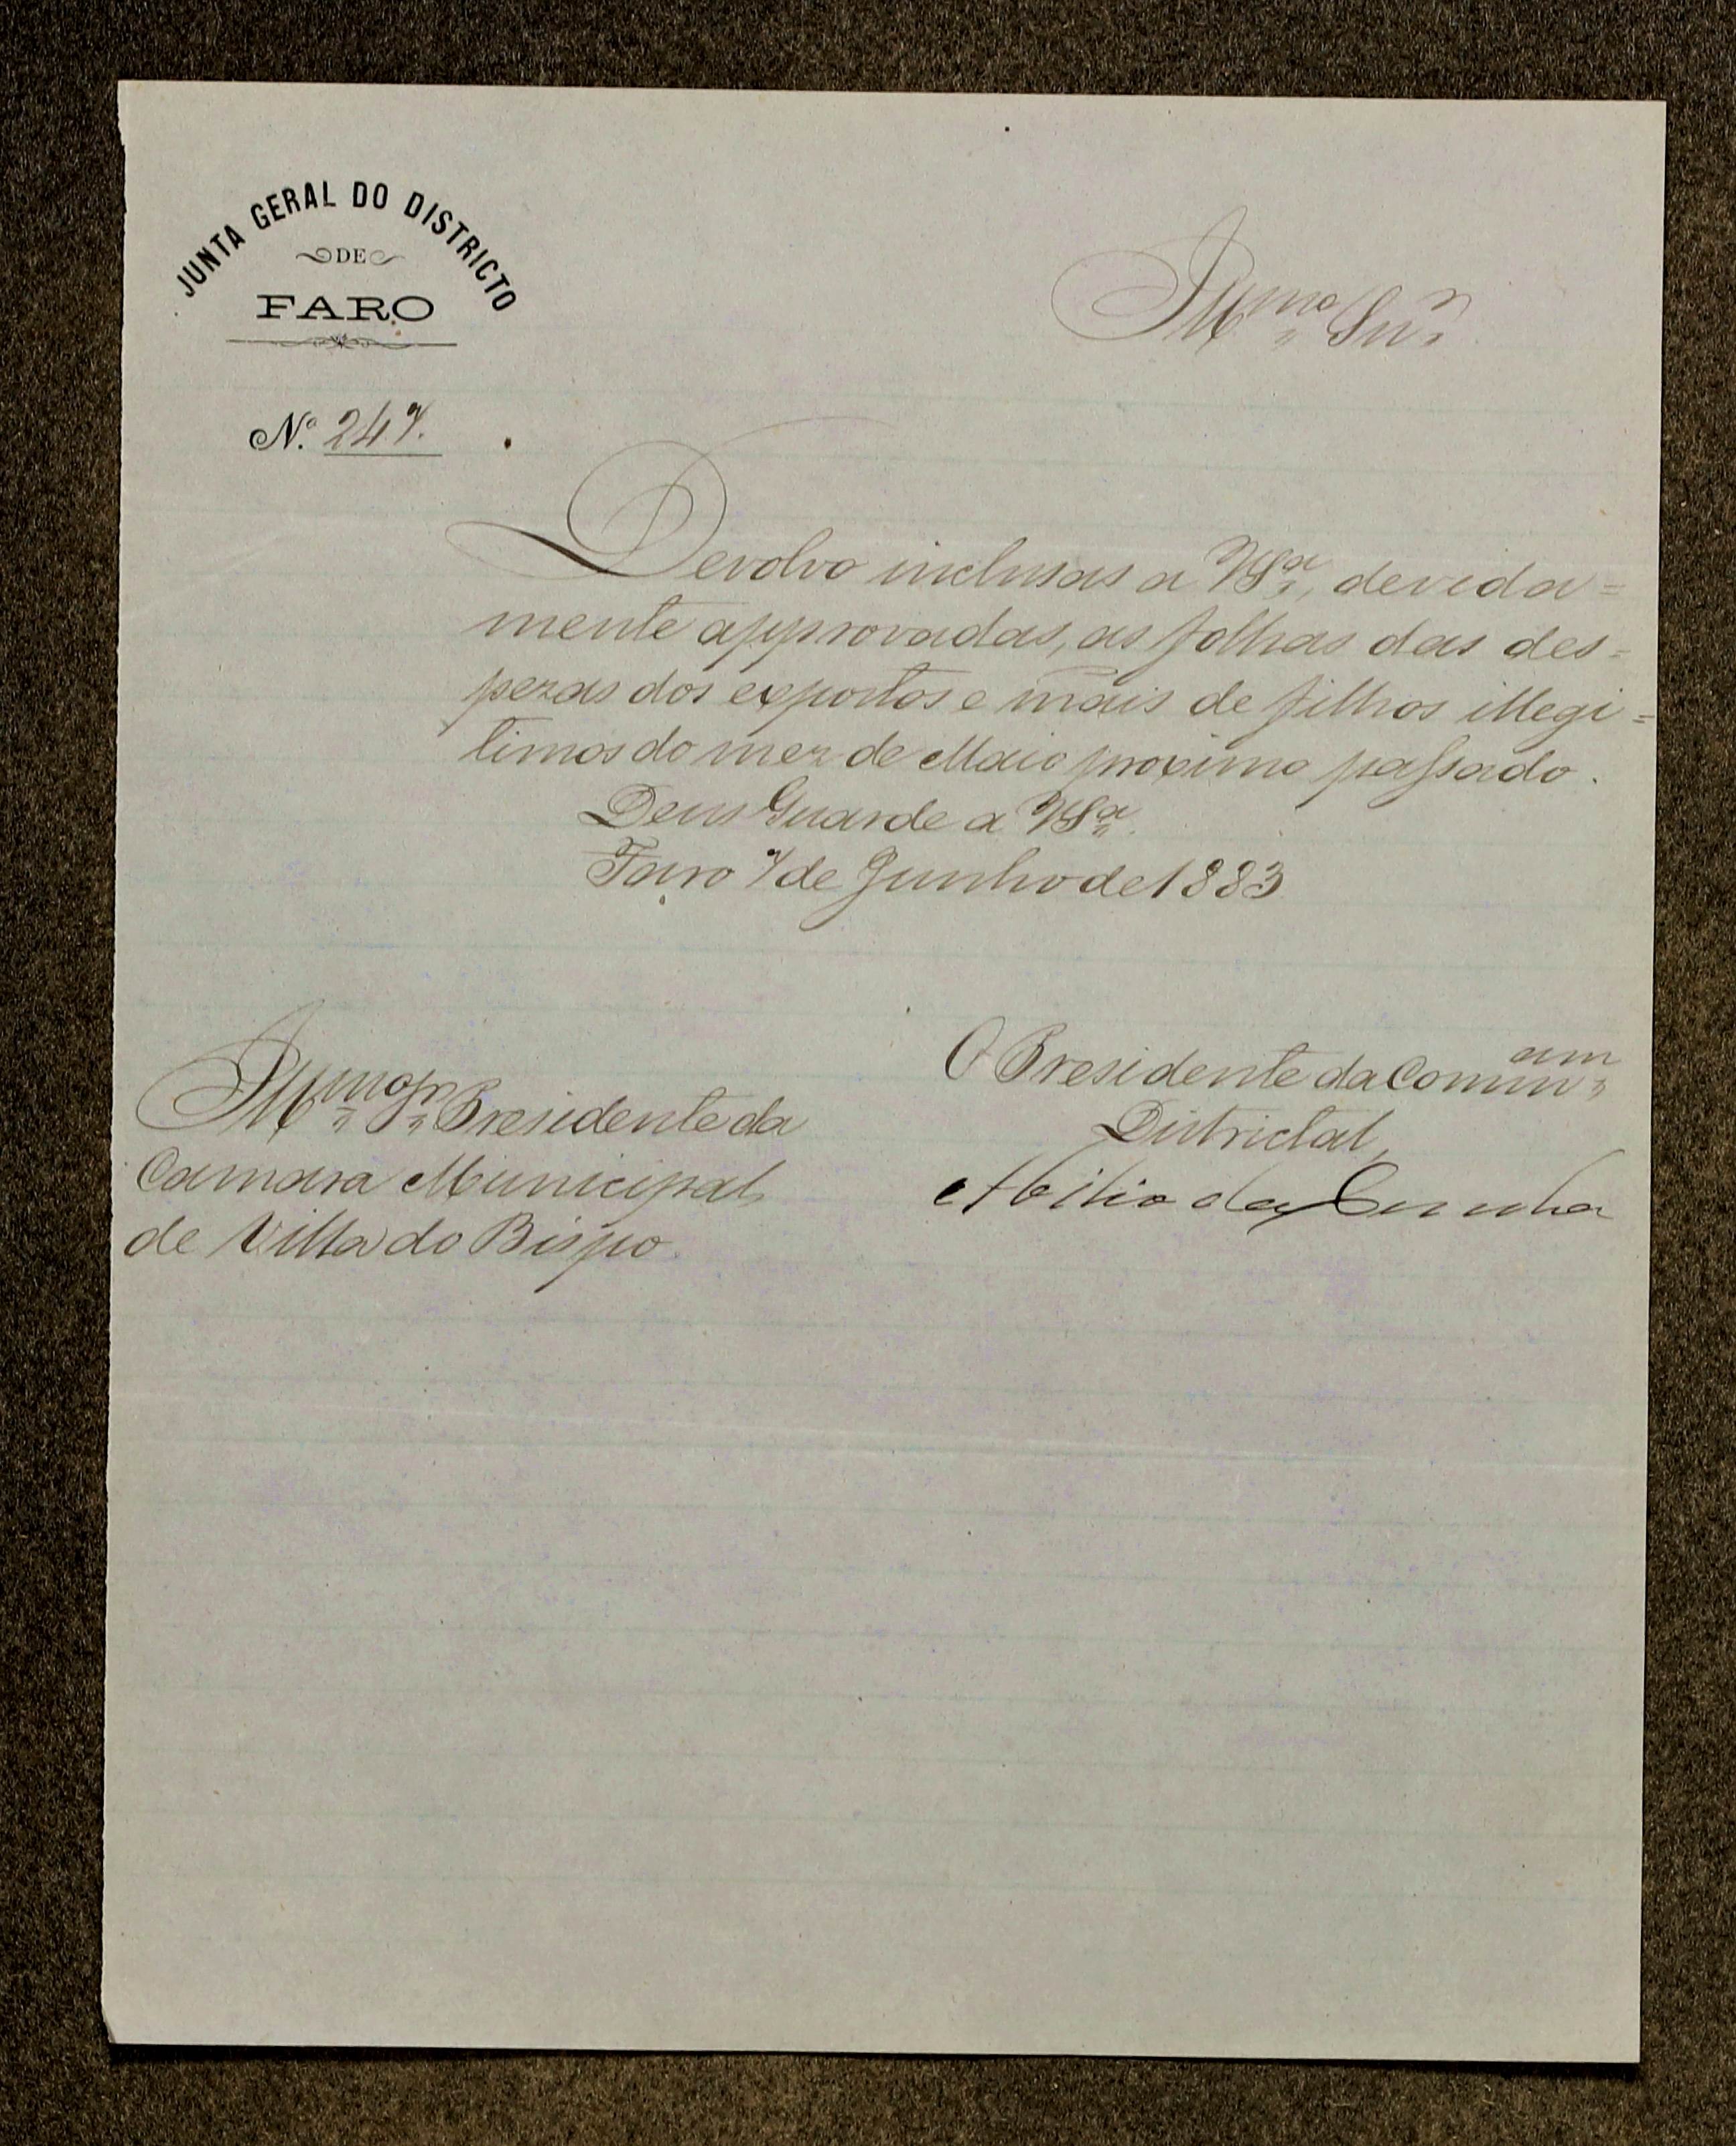 JUNTA GERAL DO DISTRICTO
DE
FARO
Illmo Snr
N.º 247.
Devolvo inclusas a VSª, devida=
mente approvadas, as folhas das des=
pezas dos expostos e mãis de filhos illegi=
timos do mez de Maio proximo passado.
Deus Guarde a VSª.
Faro 7 de Junho de 1883
O Presidente da Commam
Districtal,
Abilio da Cunha
Illmo Sr Presidente da
Camara Municipal
de Villa do Bispo.